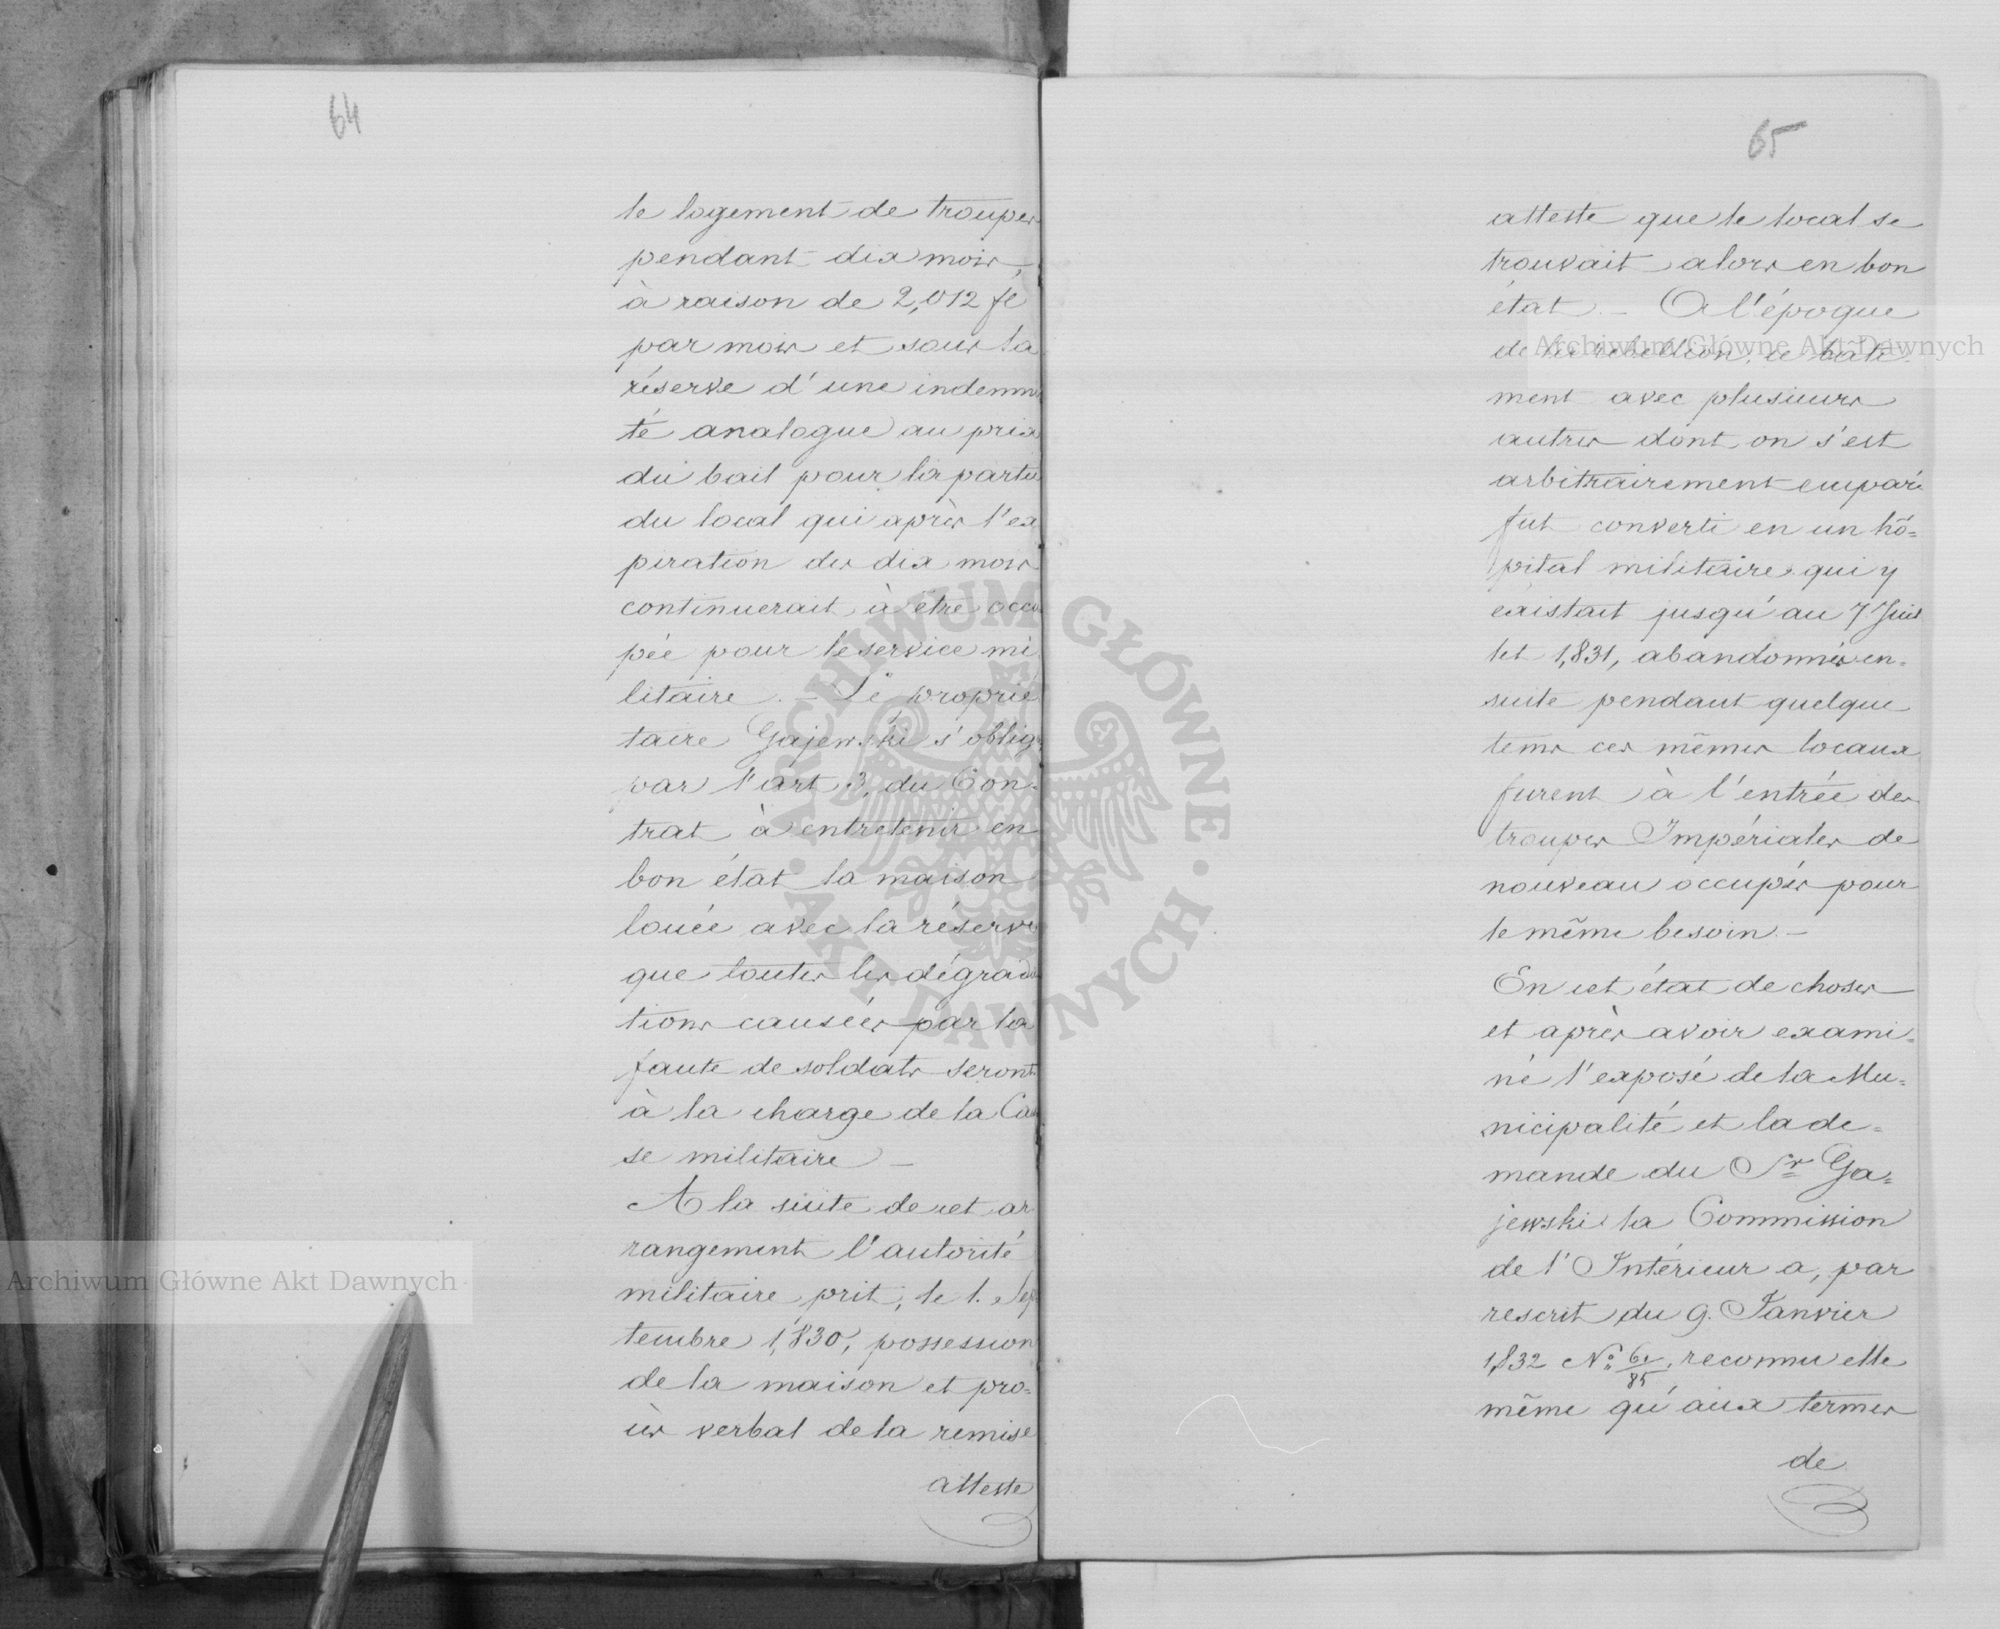 64
le logement de troupes
pendant dix mois,
à raison de 2,012 fl
par mois et sous la
réserve d'une indemni
té analogue au prix
du bail pour la partie
du local qui après l'ex
piration des dix mois
continuerait à être occu
pée pour le service mi
litaire. - Le proprié
taire Gajewski s'oblige
par l'art 3, du Con-
trat à entretenir en
bon état la maison
louée avec la réserve
que toutes les dégrada
tions causées par la
faute de soldats seront
à la charge de la Cais
se militaire -
A la suite de cet ar
rangement l'autorité
militaire prit, le 1. Sep
tembre 1,830, possession
de la maison et pro=
cès verbal de la remise
atteste
65
atteste que le local se
trouvait alors en bon
état. - A l'époque
de la rébellion, ce bâti-
ment avec plusieurs
autres dont on s'est
arbitrairement emparé
fut converti en un hô=
pital militaire qui y
existait jusqu'au 7 Juil
let 1,831, abandonnés en=
suite pendant quelque
tems ces mêmes locaux
furent à l'entrée des
troupes Impériales de
nouveau occupés pour
le même besoin. -
En cet état de choses
et après avoir exami=
né l'exposé de la Mu=
nicipalité et la de=
mande du Sr Ga=
jewski la Commission
de l'Intérieur a, par
rescrit du 9. Janvier
1,832 No 61/85, reconnu elle
même qu'aux termes
de
Archiwum Główne Akt Dawnych
Archiwum Główne Akt Dawnych
ARCHIWUM GŁÓWNE · AKT DAWNYCH ·